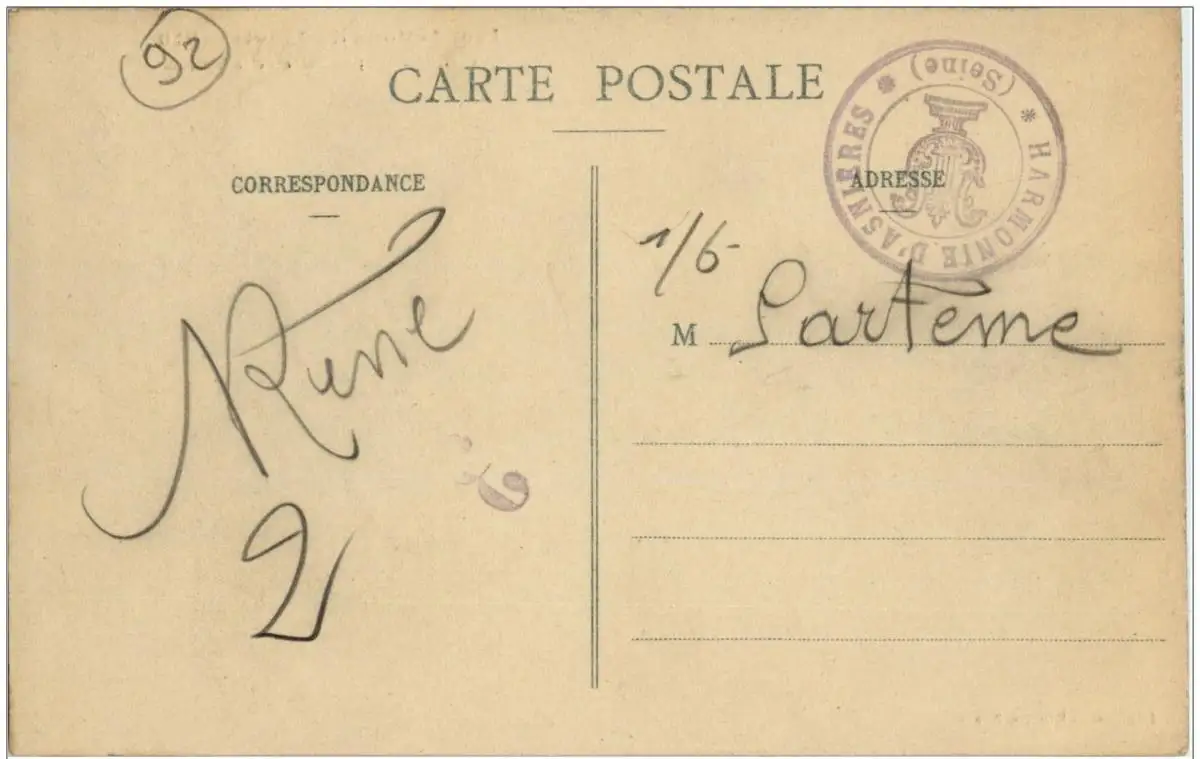 92
CARTE POSTALE
HARMONIE D'ASNIERES * (Seine) *
CORRESPONDANCE
ADRESSE
1/6
M Partème
René
2